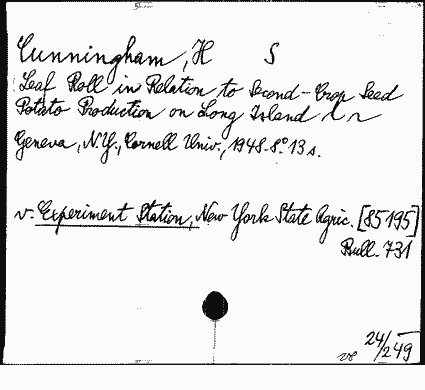 Cunningham, H S
Leaf Roll in Relation to Second-Crop Seed
Potato Production on Long Island
Geneva, N.Y., Cornell Univ., 1948. 8° 13 s.
v. Experiment Station, New York State Agric. [85195]
Bull. 731
24/249